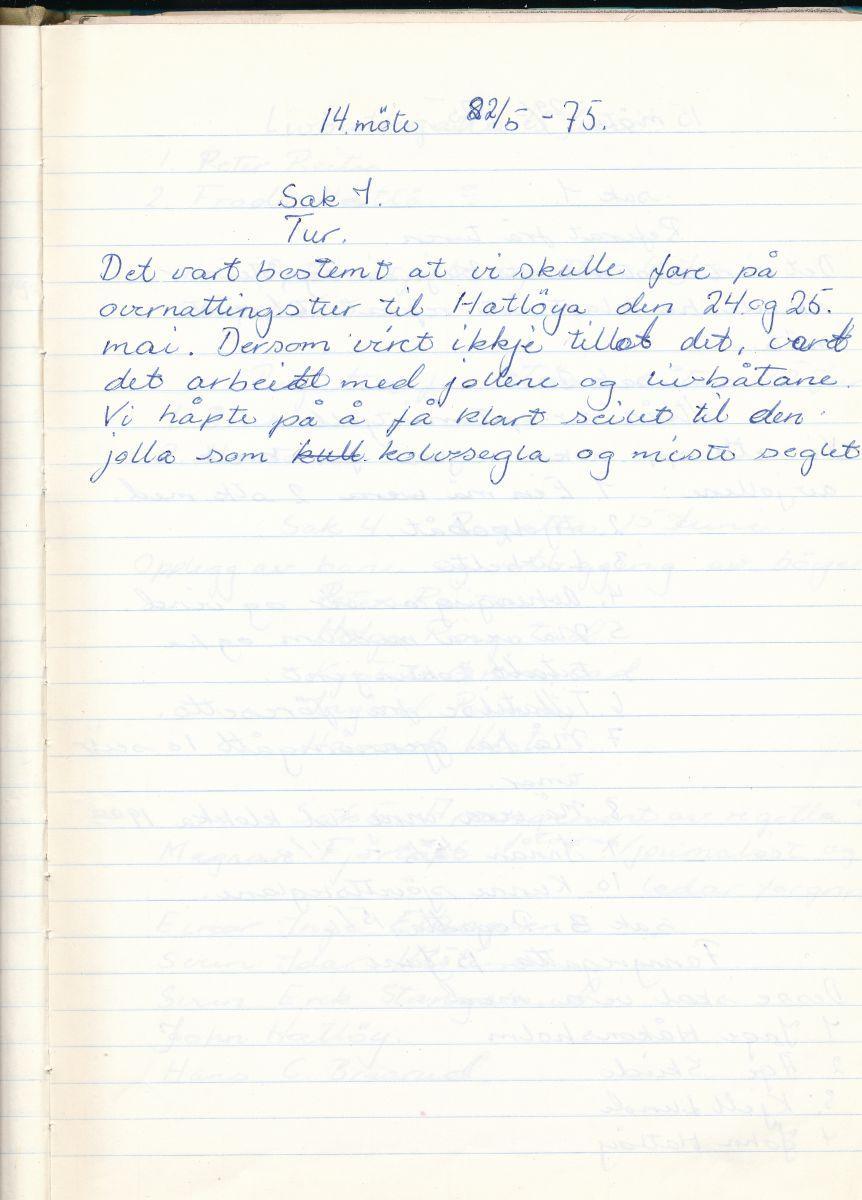 14. möte 22/5 - 75.
Sak 1.
Tur.
Det vart bestemt at vi skulle fare på
overnattingstur til Hatlöya den 24. og 25.
mai. Dersom viret ikkje tillot det, vart
det arbeidt med jollene og livbåtane.
Vi håpte på å få klart seilet til den
jolla som kull. kolvsegla og miste seglet